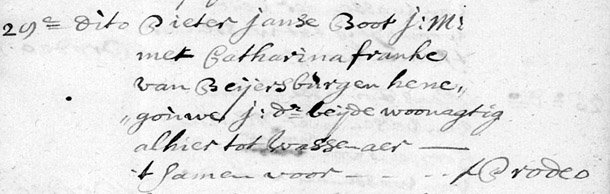 29e dito Pieter Janse Boot j: M:
met Catharina franke
van Beijersburgen hene„
„gouwe j: dr beijde woonagtig
alhier tot Wassenaer —
t Samen voor - - - - f Prodeo